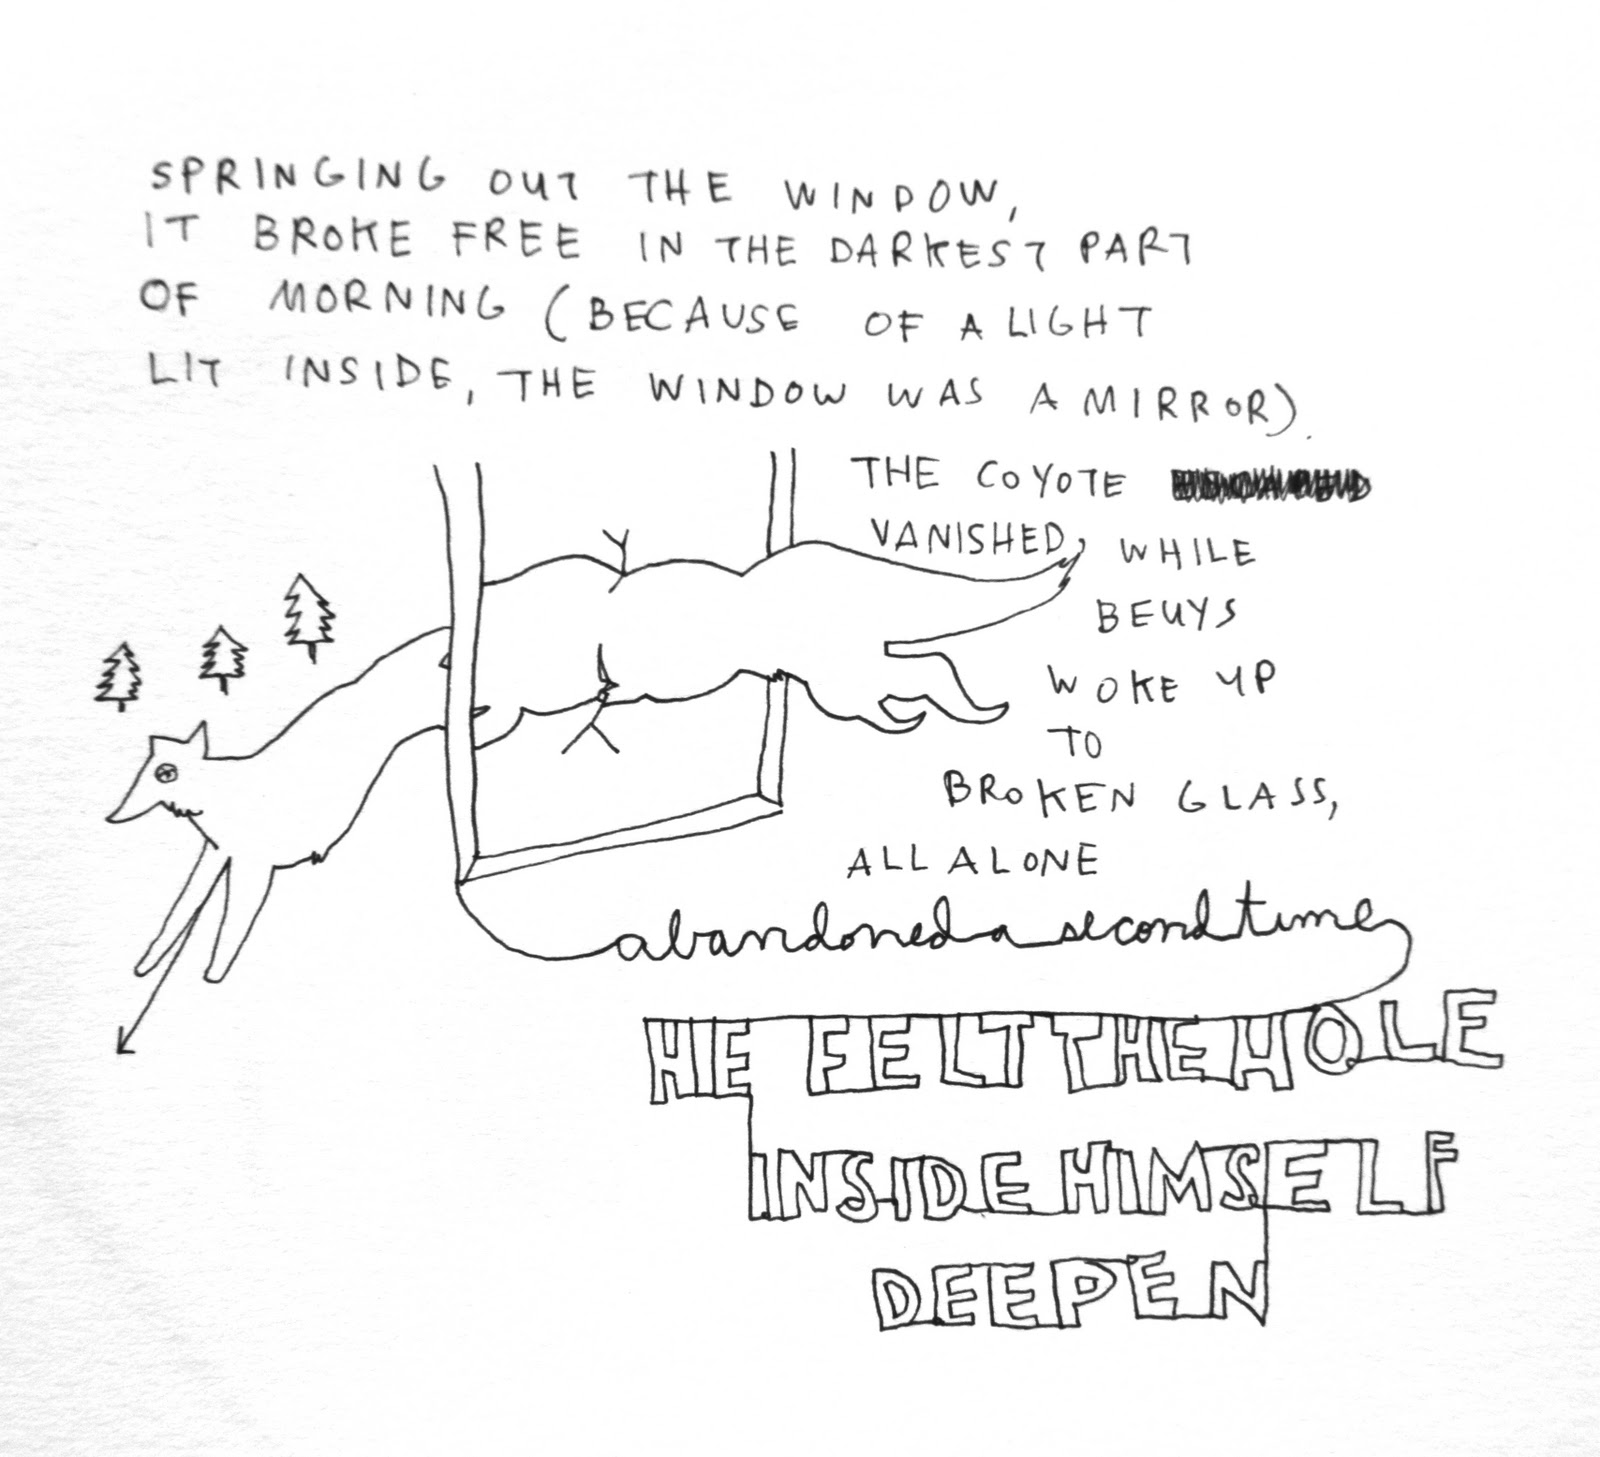 SPRINGING OUT THE WINDOW,
IT BROKE FREE IN THE DARKEST PART
OF MORNING (BECAUSE OF A LIGHT
LIT INSIDE, THE WINDOW WAS A MIRROR).
THE COYOTE
VANISHED, WHILE
BEUYS
WOKE UP
TO
BROKEN GLASS,
ALL ALONE
abandoned a second time
HE FELT THE HOLE
INSIDE HIMSELF
DEEPEN